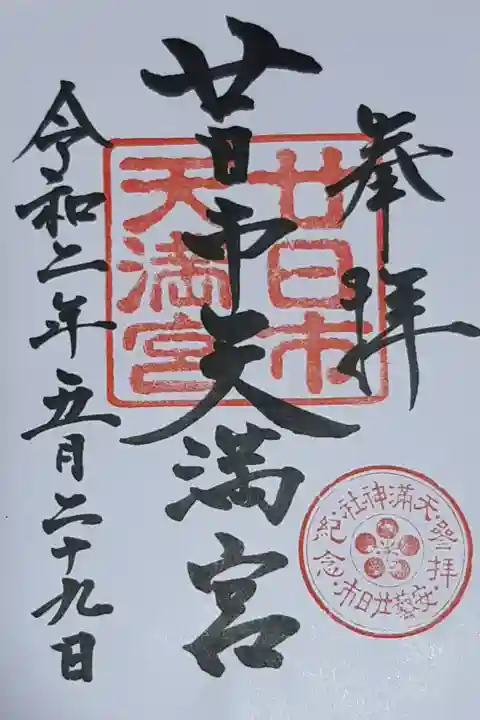 奉拝
廿日市天満宮
廿日市
天満宮
令和二年五月二十九日
天満神社
登拝
紀念
安藝廿日市